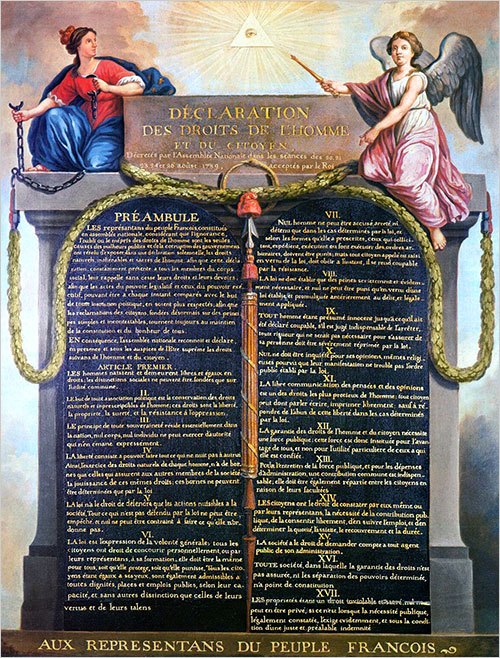 DÉCLARATION
DES DROITS DE L'HOMME
ET DU CITOYEN,
Décretés par l'Assemblée Nationale dans les séances des 20, 21
23, 24 et 26 août 1789, acceptés par le Roi
PRÉAMBULE
LES représentans du peuple François, constitués
en assemblée nationale, considérant que l'ignorance,
l'oubli ou le mépris des droits de l'homme sont les seules
causes des malheurs publics et de la corruption des gouvernemens
ont résolu d'exposer dans une déclaration solemnelle, les droits
naturels, inaliénables et sacrés de l'homme, afin que cette décla-
ration, constamment présente a tous les membres du corps
social, leur rappelle sans cesse leurs droits et leurs devoirs,
afin que les actes du pouvoir législatif et ceux du pouvoir exé-
cutif, pouvant être a chaque instant comparés avec le but
de toute institution politique, en soient plus respectés; afin que
les reclamations des citoyens, fondées désormais sur des princi-
pes simples et incontestables, tournent toujours au maintien
de la constitution et du bonheur de tous.
EN conséquence, l'assemblée nationale reconnoit et déclare,
en presence et sous les auspices de l'Etre suprême les droits
suivans de l'homme et du citoyen.
ARTICLE PREMIER.
LES hommes naissent et demeurent libres et égaux en
droits; les distinctions sociales ne peuvent être fondées que sur
l'utilité commune.
II.
LE but de toute association politique est la conservation des droits
naturels et inprescriptibles de l'homme; ces droits sont la liberté,
la propriété, la sureté, et la résistance à l'oppression.
III.
LE principe de toute souveraineté réside essentiellement dans
la nation, nul corps, nul individu ne peut exercer d'autorité
qui n'en émane expressement.
IV.
LA liberté consiste a pouvoir faire tout ce qui ne nuit pas à autrui.
Ainsi, l'exercice des droits naturels de chaque homme, n'a de bor-
nes que celles qui assurent aux autres membres de la société
la jouissance de ces mêmes droits; ces bornes ne peuvent
être déterminées que par la loi
V.
LA loi n'a le droit de défendre que les actions nuisibles a la
société. Tout ce qui n'est pas défendu par la loi ne peut être
empêché, et nul ne peut être contraint à faire ce qu'elle n'or-
donne pas.
VI.
LA loi est l'expression de la volonté générale; tous les
citoyens ont droit de concourir personnellement, ou par
leurs représentans, à sa formation; elle doit être la même
pour tous, soit qu'elle protege, soit qu'elle punisse. Tous les cito-
yens étant égaux a ses yeux, sont également admissibles a
toutes dignités, places et emplois publics, selon leur capa-
cité, et sans autres distinction que celles de leurs
vertus et de leurs talens
VII.
NUL homme ne peut être accusé, arreté, ni
détenu que dans les cas déterminés par la loi, et
selon les formes qu'elle a prescrites, ceux qui sollici-
tent, expédient, exécutent ou font exécuter des ordres ar-
bitraires, doivent être punis; mais tout citoyen appelé ou saisi
en vertu de la loi, doit obéir a l'instant, il se rend coupable
par la résistance.
VIII.
LA loi ne doit établir que des peines strictement et évidem-
ment nécessaire, et nul ne peut être puni qu'en vertu d'une
loi établie et promulguée antérieurement au délit, et légale-
ment appliquée.
IX.
TOUT homme étant présumé innocent jusqu'a ce qu'il ait
été déclaré coupable, s'il est jugé indispensable de l'arrêter,
toute rigueur qui ne serait pas nécessaire pour s'assurer de
sa personne doit être sévérement réprimée par la loi.
X.
NUL ne doit être inquiété pour ses opinions, mêmes religi-
euses pourvu que leur manifestation ne trouble pas l'ordre
public établi par la loi.
XI.
LA libre communication des pensées et des opinions
est un des droits les plus precieux de l'homme; tout citoyen
peut donc parler écrire, imprimer librement: sauf a ré-
pondre de l'abus de cette liberté dans les cas déterminés
par la loi.
XII.
LA garantie des droits de l'homme et du citoyen nécessite
une force publique; cette force est donc instituée pour l'avan-
tage de tous, et non pour l'utilité particuliere de ceux a qui
elle est confiée.
XIII.
Pour l'entretien de la force publique, et pour les dépenses
d'administration, une contribution commune est indispen-
sable; elle doit être également répartie entre les citoyens en
raison de leurs facultés
XIV.
LES citoyens ont le droit de constater par eux même ou
par leurs représentans, la nécessité de la contribution pub-
lique, de la consentir librement, d'en suivre l'emploi, et d'en
déterminer la quotité, l'assiette, le recouvrement et la durée.
XV.
LA société a le droit de demander compte a tout agent
public de son administration.
XVI.
TOUTE société, dans laquelle la garantie des droits n'est
pas assurée, ni les séparation des pouvoirs déterminée,
n'a point de constitution
XVII.
LES propriétés étant un droit inviolable et sacré, nul ne
peut en être privé, si ce n'est lorsque la nécessité publique,
légalement constatée, l'exige evidemment, et sous la condi-
tion d'une juste et préalable indemnité
AUX REPRESENTANS DU PEUPLE FRANCOIS